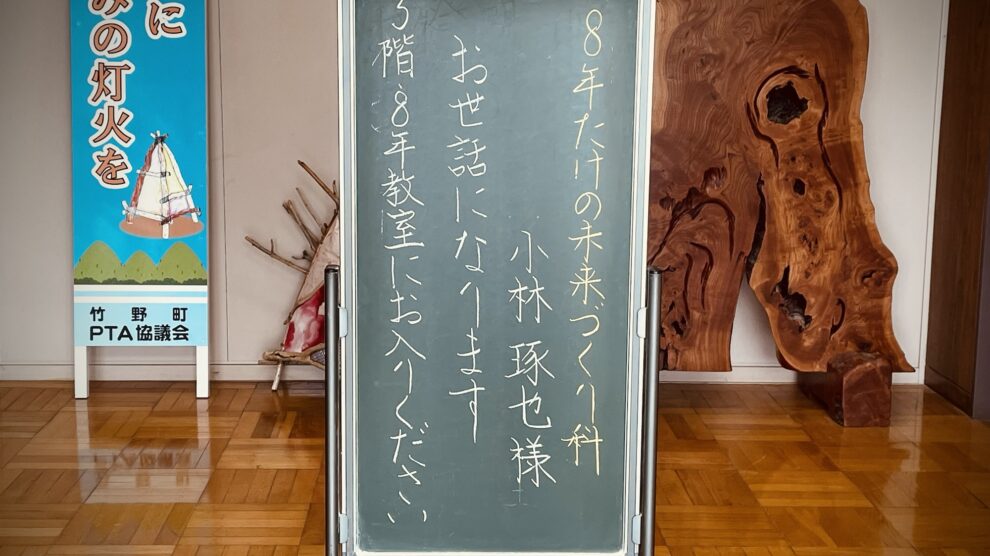 8年たけの未来づくり科
小林 琢也様
お世話になります
3階・8年教室にお入りください
に
みの灯火を
竹野町
PTA協議会